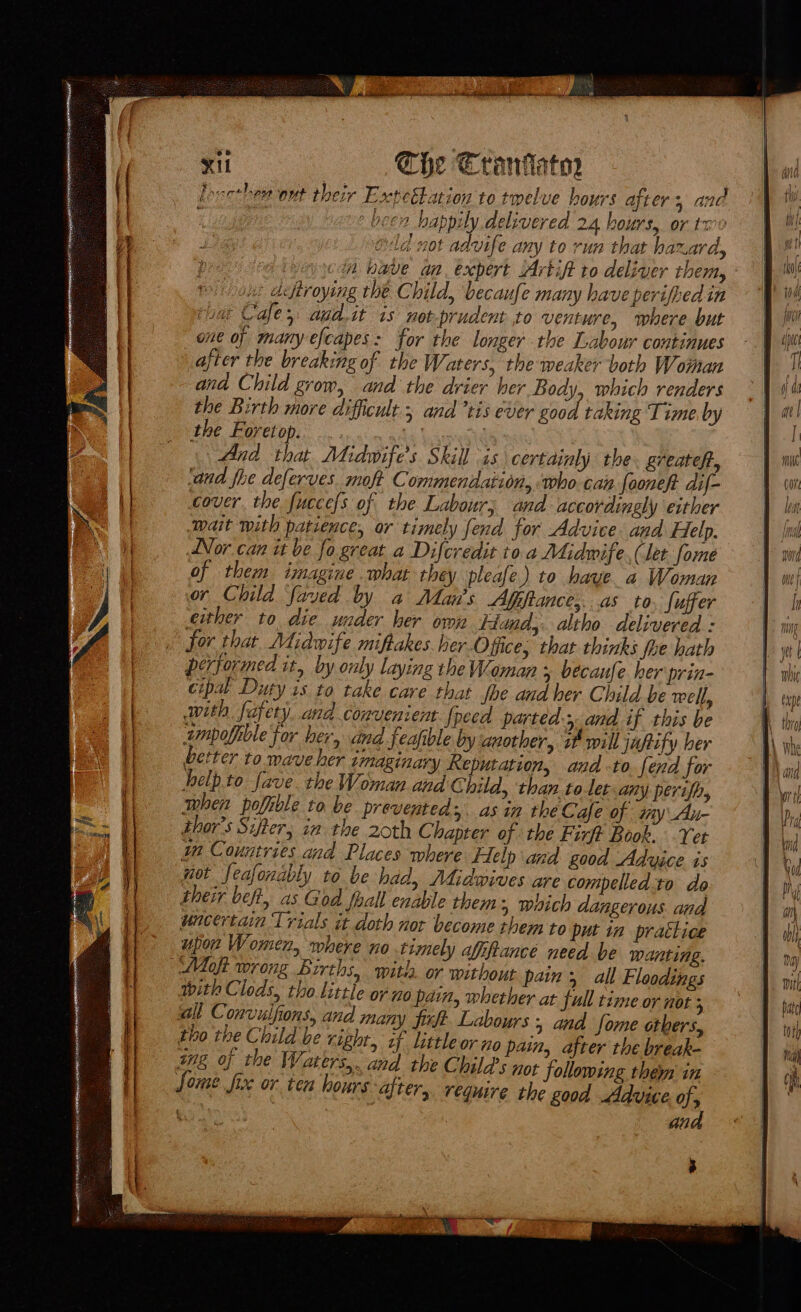 xii The Tranſlator
their Expectation to twelve hours after; and
been happily delivered 24 hours, or two
not adviſe any to run that hazard,
have an expert Artiſt to deliver them,
deſtroying the Child, becauſe many have periſhed in
that Caſe; and it is not prudent to venture, where but
one of many eſcapes: for the longer the Labour continues
after the breaking of the Waters, the weaker both Woman
and Child grow, and the drier her Body, which renders
the Birth more difficult; and 'tis ever good taking Time by
the Foretop.
And that Midwife's Skill is certainly the greateſt,
and ſhe deſerves moſt Commendation, who can ſooneſt diſ-
cover the ſucceſs of the Labour; and accordingly either
wait with patience, or timely ſend for Advice and Help.
Nor can it be ſo great a Diſcredit to a Midwife (let ſome
of them imagine what they pleaſe) to have a Woman
or Child ſaved by a Man's Aſſiſtance, as to ſuffer
either to die under her own Hand, altho delivered:
for that Midwife miſtakes her Office, that thinks ſhe hath
performed it, by only laying the Woman; becauſe her prin-
cipal Duty is to take care that ſhe and her Child be well,
with ſafety and convenient ſpeed parted; and if this be
impoſſible for her, and feaſible by another, it will juſtify her
better to wave her imaginary Reputation, and to ſend for
help to ſave the Woman and Child, than to let any periſh,
when poſſible to be prevented; as in the Caſe of my Au-
thor's Siſter, in the 20th Chapter of the Firſt Book. Yet
in Countries and Places where Help and good Advice is
not ſeaſonably to be had, Midwives are compelled to do
their beſt, as God ſhall enable them; which dangerous and
uncertain Trials it doth not become them to put in practice
upon Women, where no timely aſſiſtance need be wanting.
Moſt wrong Births, with or without pain; all Floodings
with Clods, tho little or no pain, whether at full time or not;
all Convulſions, and many firſt Labours; and ſome others,
tho the Child be right, if little or no pain, after the break-
ing of the Waters, and the Child's not following them in
ſome ſix or ten hours after, require the good Advice of,
and